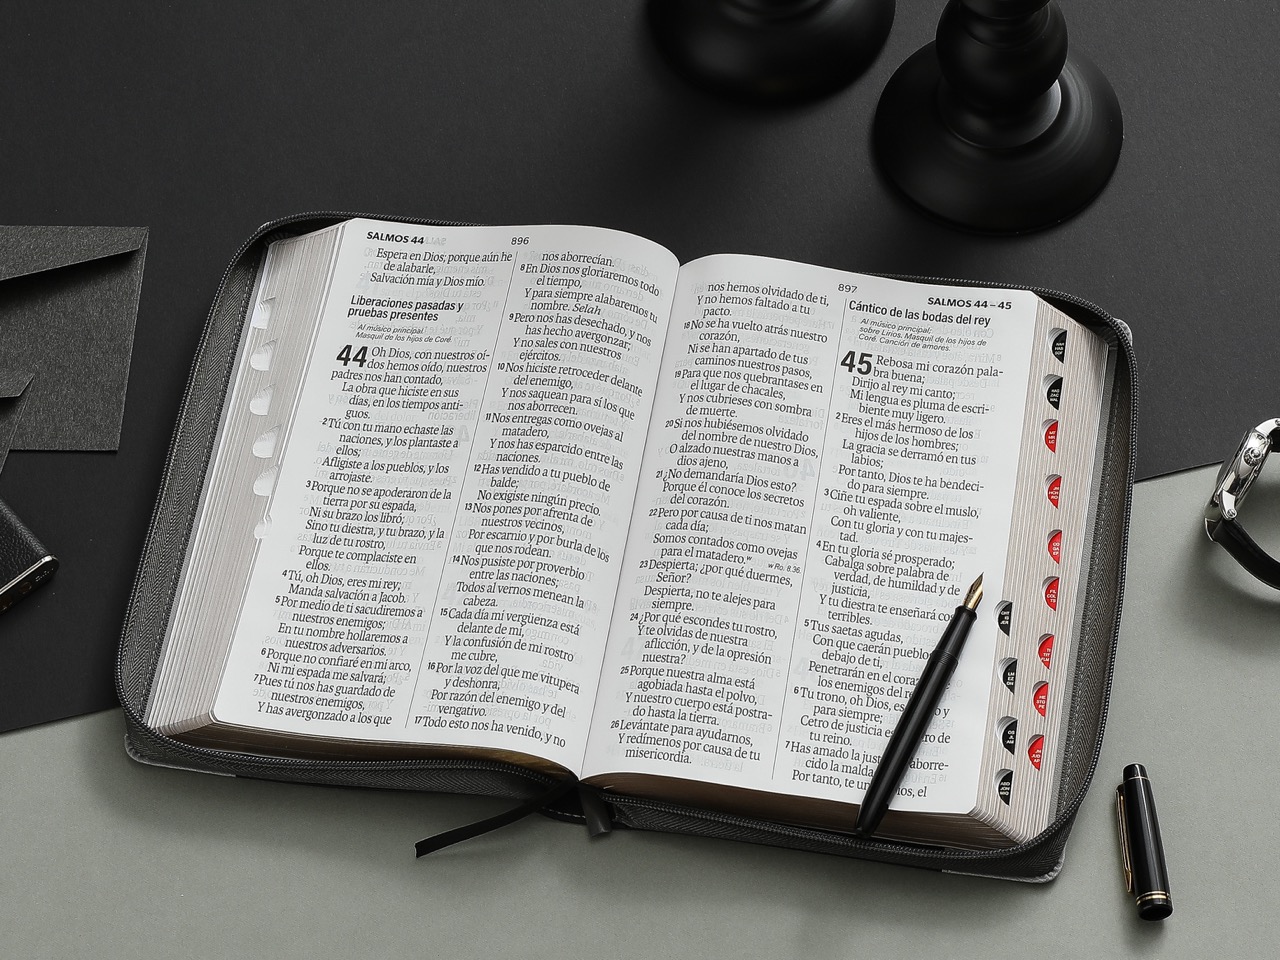 SALMOS 44
896
Espera en Dios; porque aún he
de alabarle,
Salvación mía y Dios mío.
Liberaciones pasadas y
pruebas presentes
Al músico principal.
Masquil de los hijos de Coré.
44 Oh Dios, con nuestros oí-
dos hemos oído, nuestros
padres nos han contado,
La obra que hiciste en sus
días, en los tiempos anti-
guos.
2Tú con tu mano echaste las
naciones, y los plantaste a
ellos;
Afligiste a los pueblos, y los
arrojaste.
3Porque no se apoderaron de la
tierra por su espada,
Ni su brazo los libró;
Sino tu diestra, y tu brazo, y la
luz de tu rostro,
Porque te complaciste en
ellos.
4Tú, oh Dios, eres mi rey;
Manda salvación a Jacob.
5Por medio de ti sacudiremos a
nuestros enemigos;
En tu nombre hollaremos a
nuestros adversarios.
6Porque no confiaré en mi arco,
Ni mi espada me salvará;
7Pues tú nos has guardado de
nuestros enemigos,
Y has avergonzado a los que
nos aborrecían.
8En Dios nos gloriaremos todo
el tiempo,
Y para siempre alabaremos tu
nombre. Selah
9Pero nos has desechado, y nos
has hecho avergonzar;
Y no sales con nuestros
ejércitos.
10Nos hiciste retroceder delante
del enemigo,
Y nos saquean para sí los que
nos aborrecen.
11Nos entregas como ovejas al
matadero,
Y nos has esparcido entre las
naciones.
12Has vendido a tu pueblo de
balde;
No exigiste ningún precio.
13Nos pones por afrenta de
nuestros vecinos,
Por escarnio y por burla de los
que nos rodean.
14Nos pusiste por proverbio
entre las naciones;
Todos al vernos menean la
cabeza.
15Cada día mi vergüenza está
delante de mí,
Y la confusión de mi rostro
me cubre,
16Por la voz del que me vitupera
y deshonra,
Por razón del enemigo y del
vengativo.
17Todo esto nos ha venido, y no
897
SALMOS 44–45
nos hemos olvidado de ti,
Y no hemos faltado a tu
pacto.
18No se ha vuelto atrás nuestro
corazón,
Ni se han apartado de tus
caminos nuestros pasos,
19Para que nos quebrantases en
el lugar de chacales,
Y nos cubrieses con sombra
de muerte.
20Si nos hubiésemos olvidado
del nombre de nuestro Dios,
O alzado nuestras manos a
dios ajeno,
21¿No demandaría Dios esto?
Porque él conoce los secretos
del corazón.
22Pero por causa de ti nos matan
cada día;
Somos contados como ovejas
para el matadero.w
w Ro. 8.36.
23Despierta; ¿por qué duermes,
Señor?
Despierta, no te alejes para
siempre.
24¿Por qué escondes tu rostro,
Y te olvidas de nuestra
aflicción, y de la opresión
nuestra?
25Porque nuestra alma está
agobiada hasta el polvo,
Y nuestro cuerpo está postra-
do hasta la tierra.
26Levántate para ayudarnos,
Y redímenos por causa de tu
misericordia.
Cántico de las bodas del rey
Al músico principal;
sobre Lirios. Masquil de los hijos de
Coré. Canción de amores.
45 Rebosa mi corazón pala-
bra buena;
Dirijo al rey mi canto;
Mi lengua es pluma de escri-
biente muy ligero.
2Eres el más hermoso de los
hijos de los hombres;
La gracia se derramó en tus
labios;
Por tanto, Dios te ha bendeci-
do para siempre.
3Ciñe tu espada sobre el muslo,
oh valiente,
Con tu gloria y con tu majes-
tad.
4En tu gloria sé prosperado;
Cabalga sobre palabra de
verdad, de humildad y de
justicia,
Y tu diestra te enseñará
terribles.
5Tus saetas agudas,
Con que caerán
debajo de ti,
Penetrarán en el
los enemigos del
6Tu trono, oh Dios, y
para siempre;
Cetro de justicia de
tu reino.
7Has amado la
cido la
Por tanto, te el